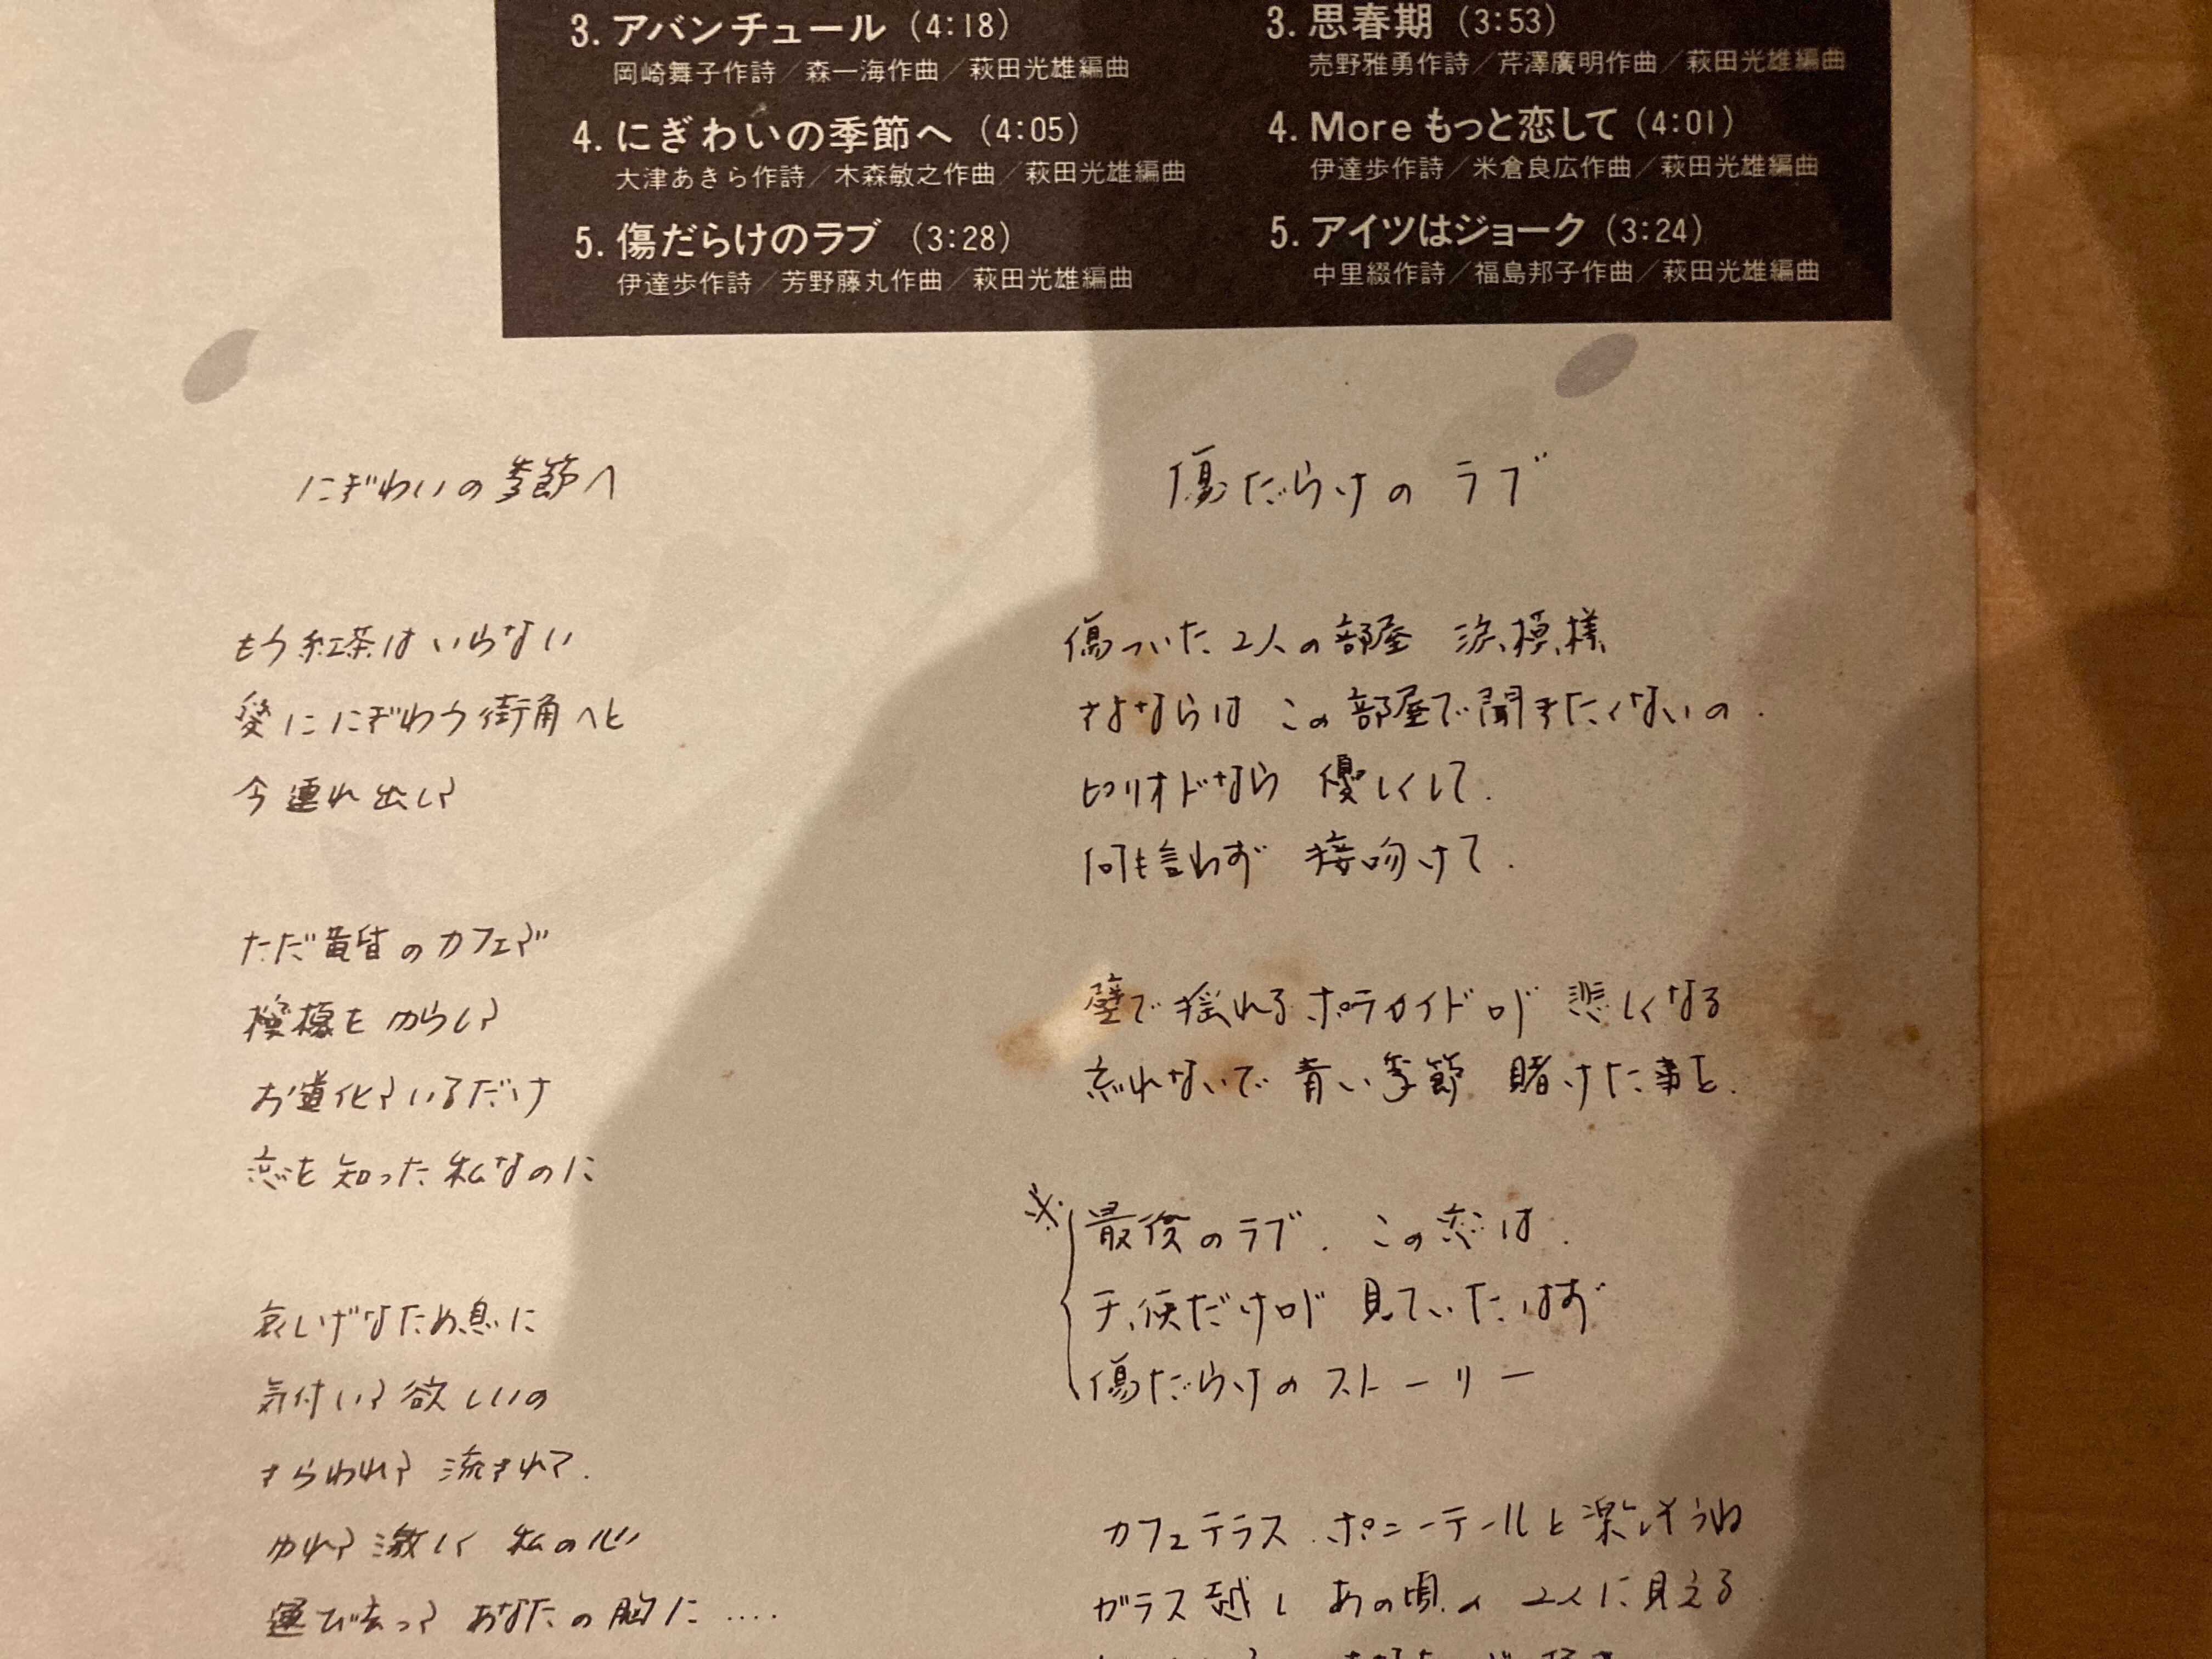 3. アバンチュール (4:18)
岡崎舞子作詩／森一海作曲／萩田光雄編曲
4. にぎわいの季節へ (4:05)
大津あきら作詩／木森敏之作曲／萩田光雄編曲
5. 傷だらけのラブ (3:28)
伊達歩作詩／芳野藤丸作曲／萩田光雄編曲
3. 思春期 (3:53)
売野雅勇作詩／芹澤廣明作曲／萩田光雄編曲
4. More もっと恋して (4:01)
伊達歩作詩／米倉良広作曲／萩田光雄編曲
5. アイツはジョーク (3:24)
中里綴作詩／福島邦子作曲／萩田光雄編曲
にぎわいの季節へ
もう紅茶はいらない
愛ににぎわう街角へと
今連れ出して
ただ黄昏のカフェで
檸檬をゆらして
お道化ているだけ
恋を知った私なのに
哀しげなため息に
気付いて欲しいの
さらわれて 流されて.
ゆれて激しく 私の心
運び去って あなたの胸に ‥‥
傷だらけの ラブ
傷ついた 2人の部屋 涙模様
さよならは この部屋で聞きたくないの.
ピリオドなら 優しくして.
何も言わず 接吻けて.
壁で揺れるポラロイドが 悲しくなる
忘れないで 青い季節 賭けた事を.
※ 最後のラブ. この恋は.
天使だけが 見ていたはず
傷だらけの ストーリー
カフェテラス ポニーテールと楽しそうね
ガラス越し あの頃の 2人に見える